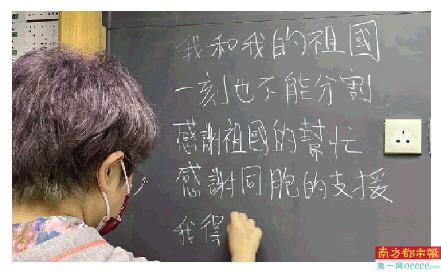 我和我的祖國
一刻也不能分割
感謝祖國的幫忙
感謝同胞的支援
我得
南方都市報
奥一网oeeee.com